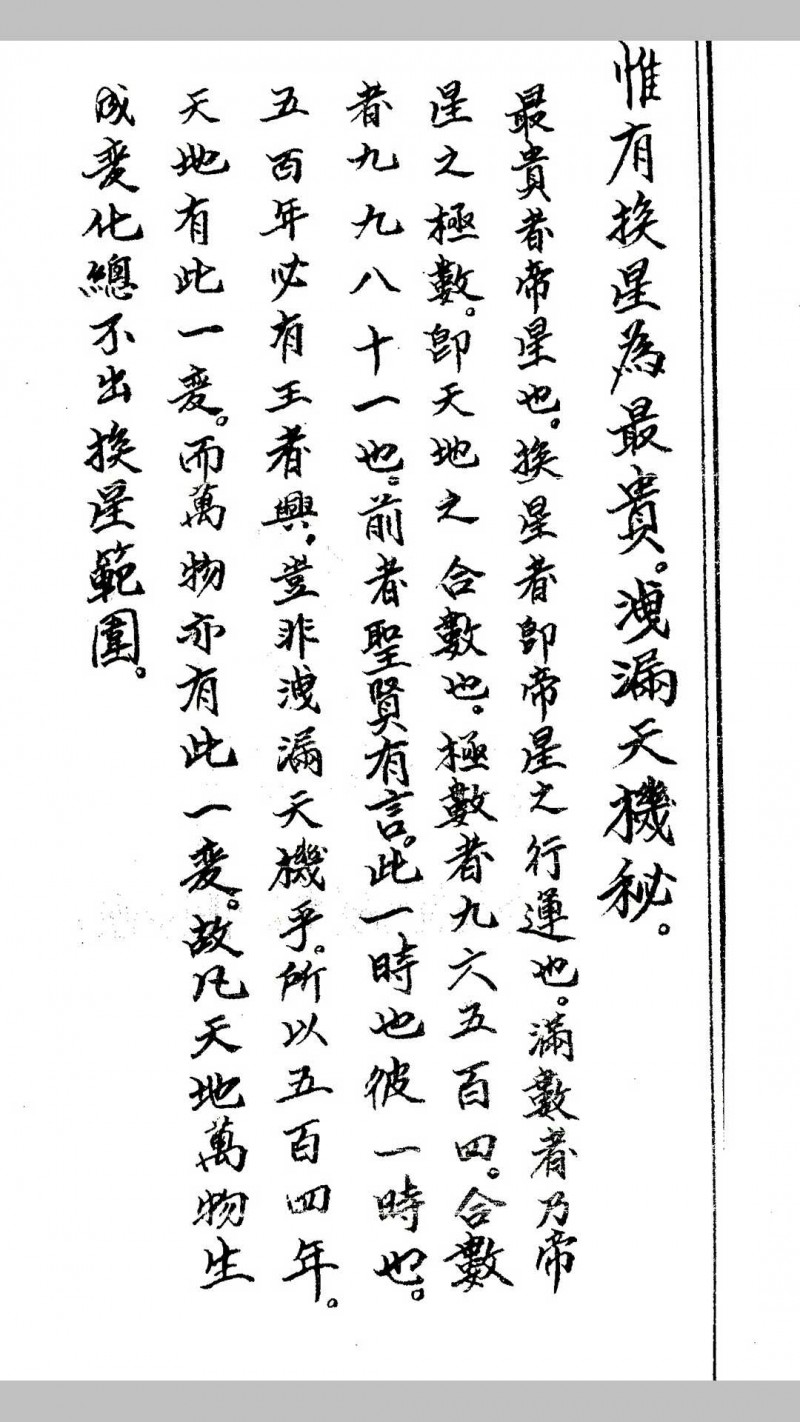 惟有挨星為最貴。洩漏天機秘。
最貴者帝星也。挨星者即帝星之行運也。滿數者乃帝
星之極數。即天地之合數也。極數者九六五百四。合數
者九九八十一也。前者聖賢有言。此一時也彼一時也。
五百年必有王者興。豈非洩漏天機乎。所以五百四年。
天地有此一变。而萬物亦有此一变。故凡天地萬物生
成变化總不出挨星範圍。